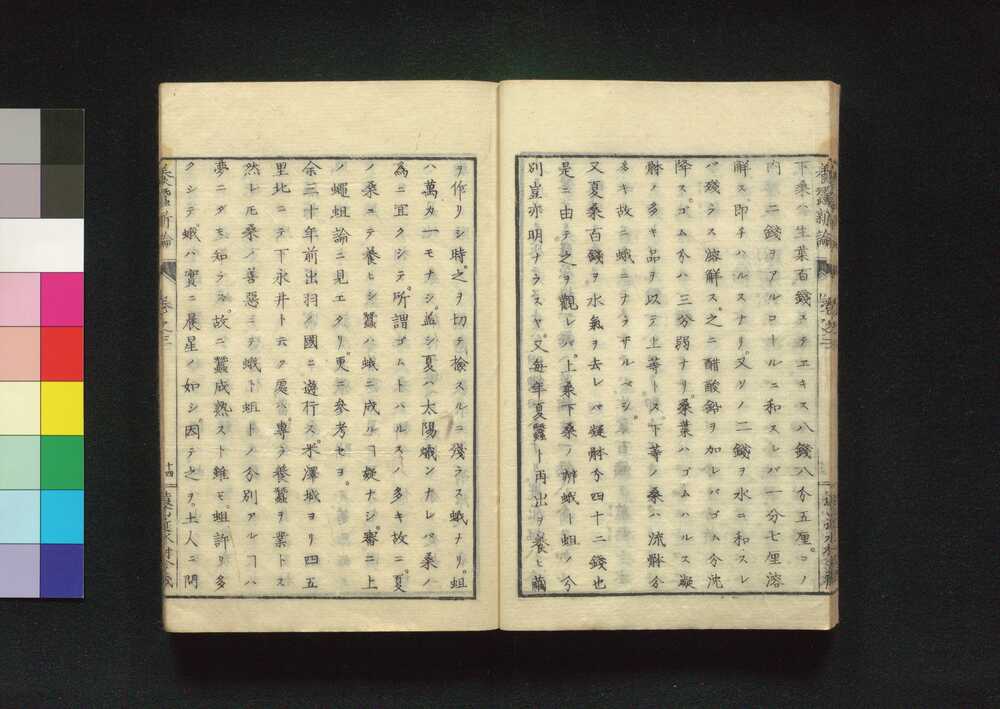 下桑ハ生葉百錢ヱテエキス八錢八分五厘。コノ
内ニ二錢ヲアルコールニ和スレバ一分七厘溶
解ス即チハルスナリ。又ソノ二錢ヲ水ニ和スレ
バ殘ラス溶解ス。之ニ醋酸鉛ヲ加レバゴム分沈
降ス。ゴム分ハ三分弱ナリ。桑葉ハゴムハルス凝
体ノ多キ品ヲ以テ上等トス。下等ノ桑ハ流体分
多キ故ニ蛾ニナラザルベシ。
又夏桑百錢ヲ水氣ヲ去レバ凝体分四十二錢也
是ニ由テ之ヲ觀レバ。上桑下桑ノ辨蛾ト蛆ノ分
別豈亦明ナラスヤ。又每年夏蠶ト再出ヲ養ヒ繭
養蠶新論
卷之三
ヲ作リシ時。之ヲ切テ檢スルニ殘ラス蛾ナリ。蛆
ハ萬カ一モナシ。盖シ夏ハ太陽熾ンナレバ桑ノ
為ニ宜クシテ。所謂ゴムトハルスノ多キ故ニ。夏
ノ桑ニテ養ヒシ蠶ハ蛾ニ成ルヿ疑ナシ。審ニ上
ノ蠅蛆論ニ見エタリ。更ニ參考セヨ。
余三十年前出羽ノ國ニ遊行ス。米澤城ヨリ四五
里北ニテ下永井ト云ク處。專ラ養蠶ヲ業トス
然レモ桑ノ善惡ニテ蛾ト蛆トノ分別アルヿハ
夢ニダモ知ラス。故ニ蠶成熟スト雖モ。蛆許リ多
クシテ。蛾ハ實ニ晨星ノ如シ。因テ之ヲ。土人ニ問
養蠶新論
卷之三
十四